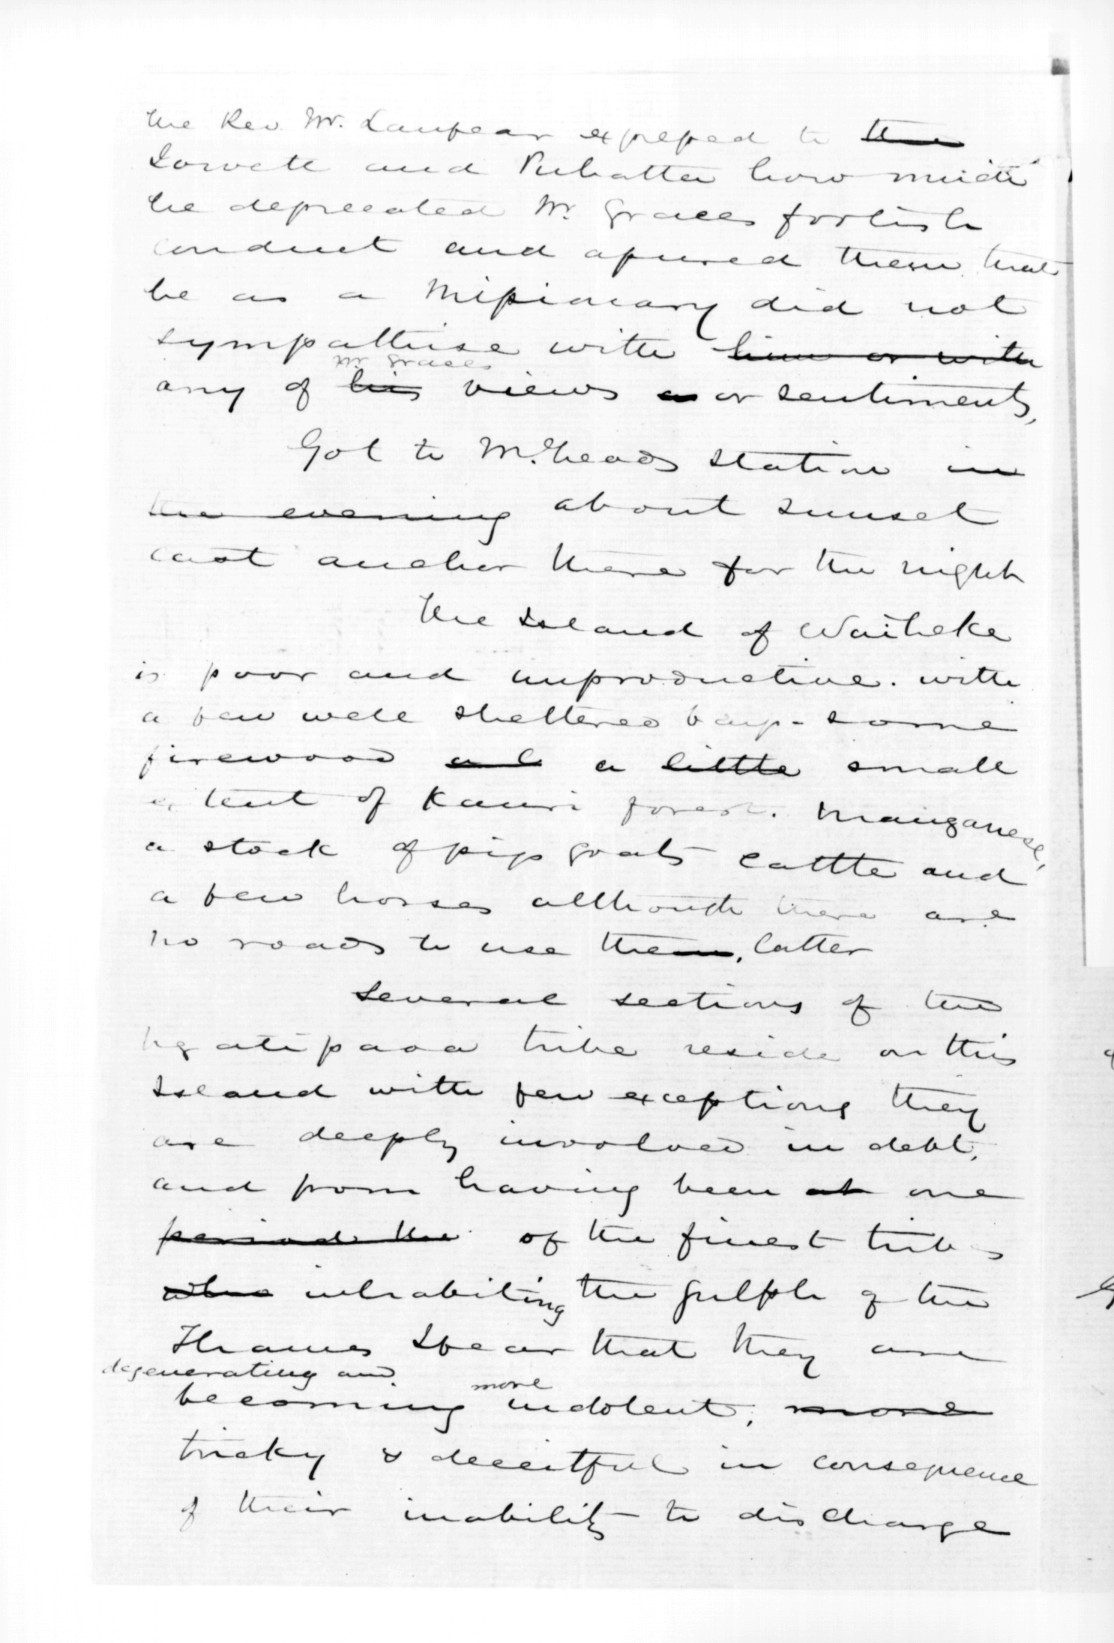 The Rev. Mr. Lanfear expressed to the
and how much
he deprecated Mr Graces foolish
conduct and assured them that
he as a Missionary did not
sympathise with him or with
Mr Graces
any of his views or sentiments,
Got to station in
the evening about sunset
cast anchor there for the night
The Island of Waiheke
is poor and unproductive. with
a few well sheltered bays - some
firewood a little small
extent of Kauri forest. Manganese,
a stock of pigs goats cattle and
a few horses although there are
no roads to use them, latter
Several sections of the
Ngatipaoa tribe reside on this
Island with few exceptions they
are deeply involved in debt,
and from having been at one
period the of the finest tribes
who inhabiting the Gulph of the
Thames I fear that they are
degenerating and
more
becoming indolent, more
tricky & deceitful in consequence
of their inability to discharge